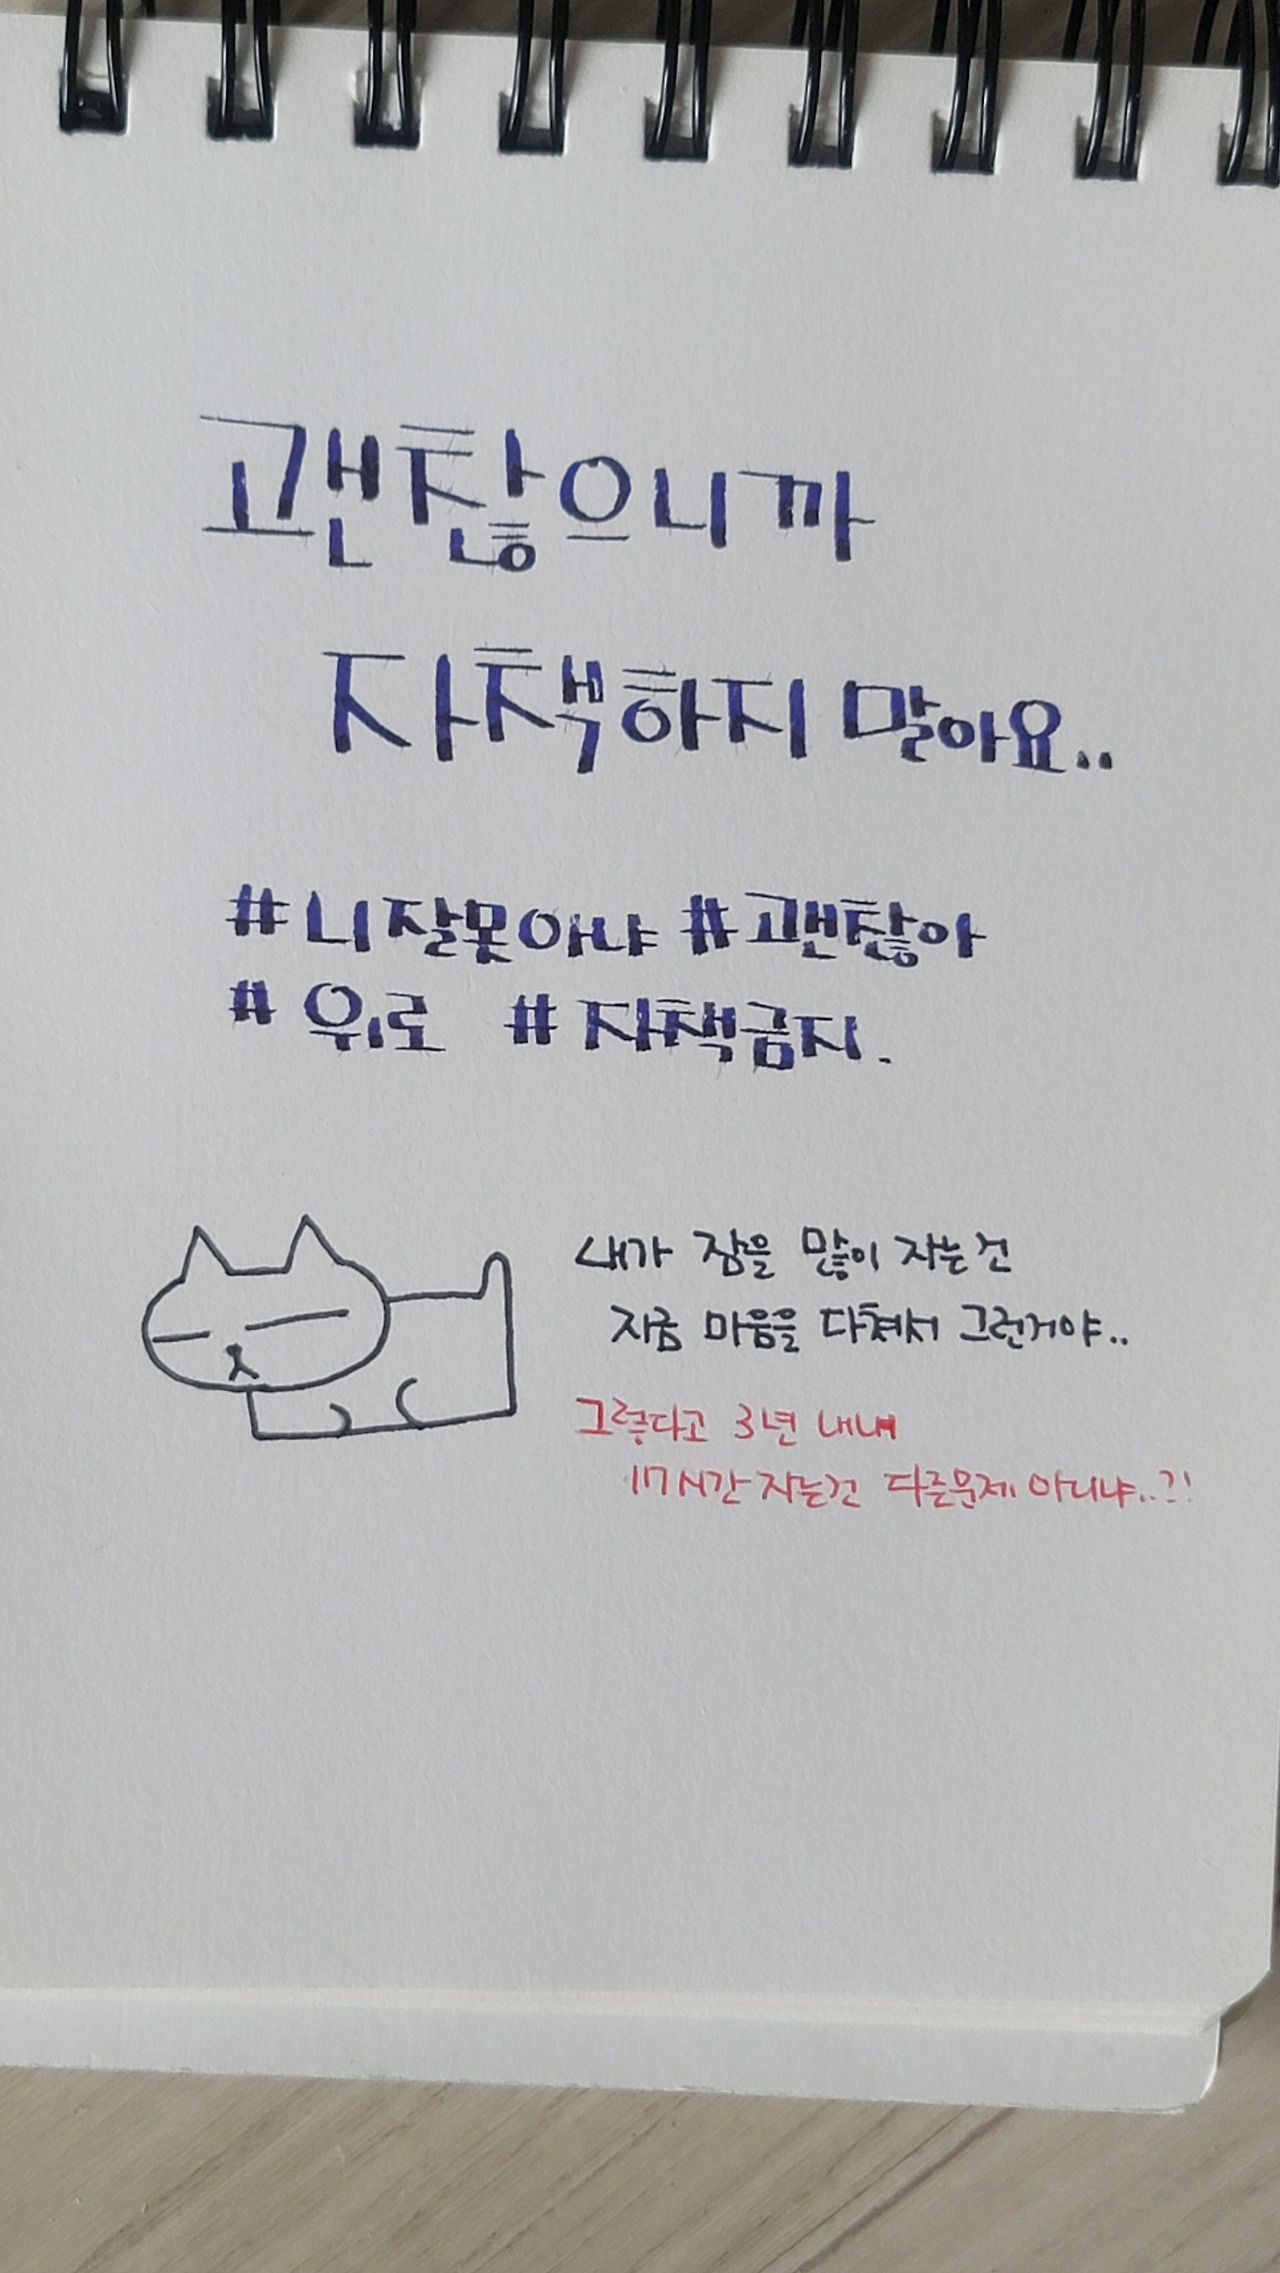 괜찮으니까
자책하지 말아요..
#니잘못아냐 #괜찮아
#위로 #자책금지.
내가 잠을 많이 자는건
지금 마음을 다쳐서 그런거야..
그렇다고 3년 내내
17시간 자는건 다른문제 아니냐..?!